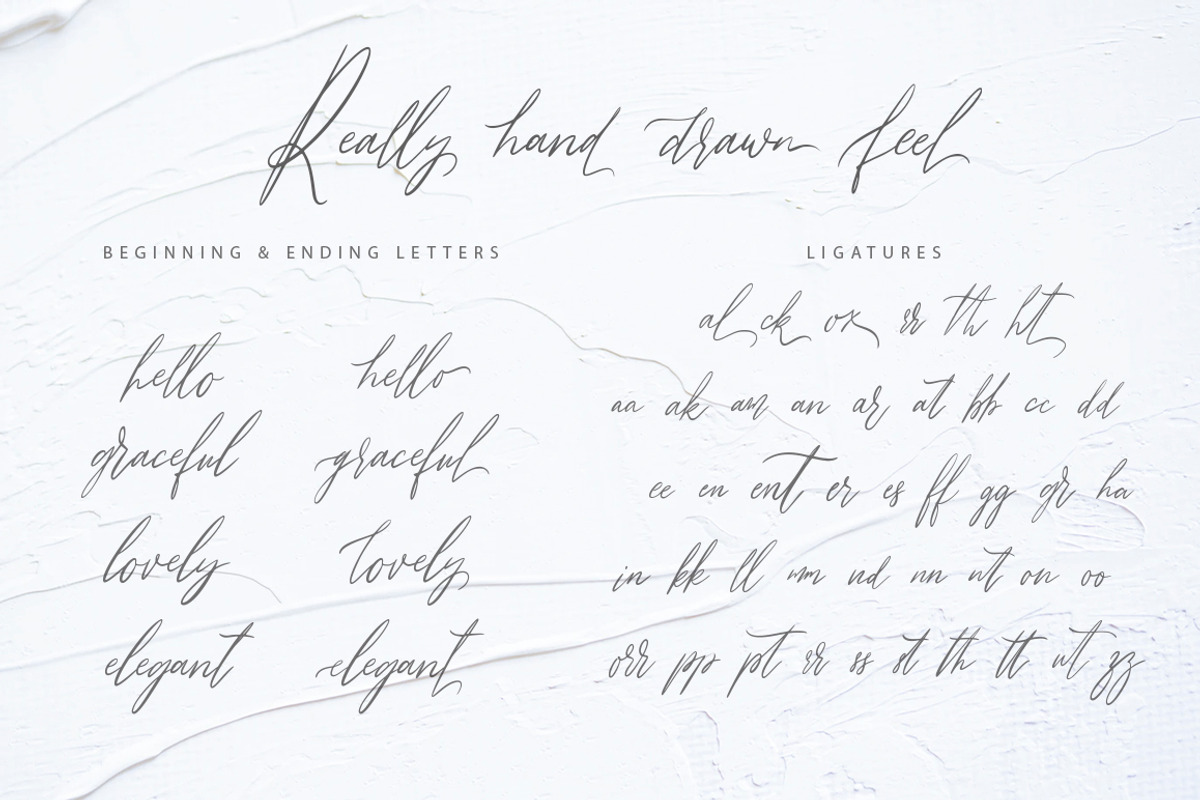 Really hand drawn feel
BEGINNING & ENDING LETTERS
hello hello
graceful graceful
lovely lovely
elegant elegant
LIGATURES
al ck ox rr th ht
aa ak am an ar at bb cc dd
ee en ent er es ff gg gr ha
in kk ll mm nd nn nt on oo
orr pp pt rr ss st th tt ut zz